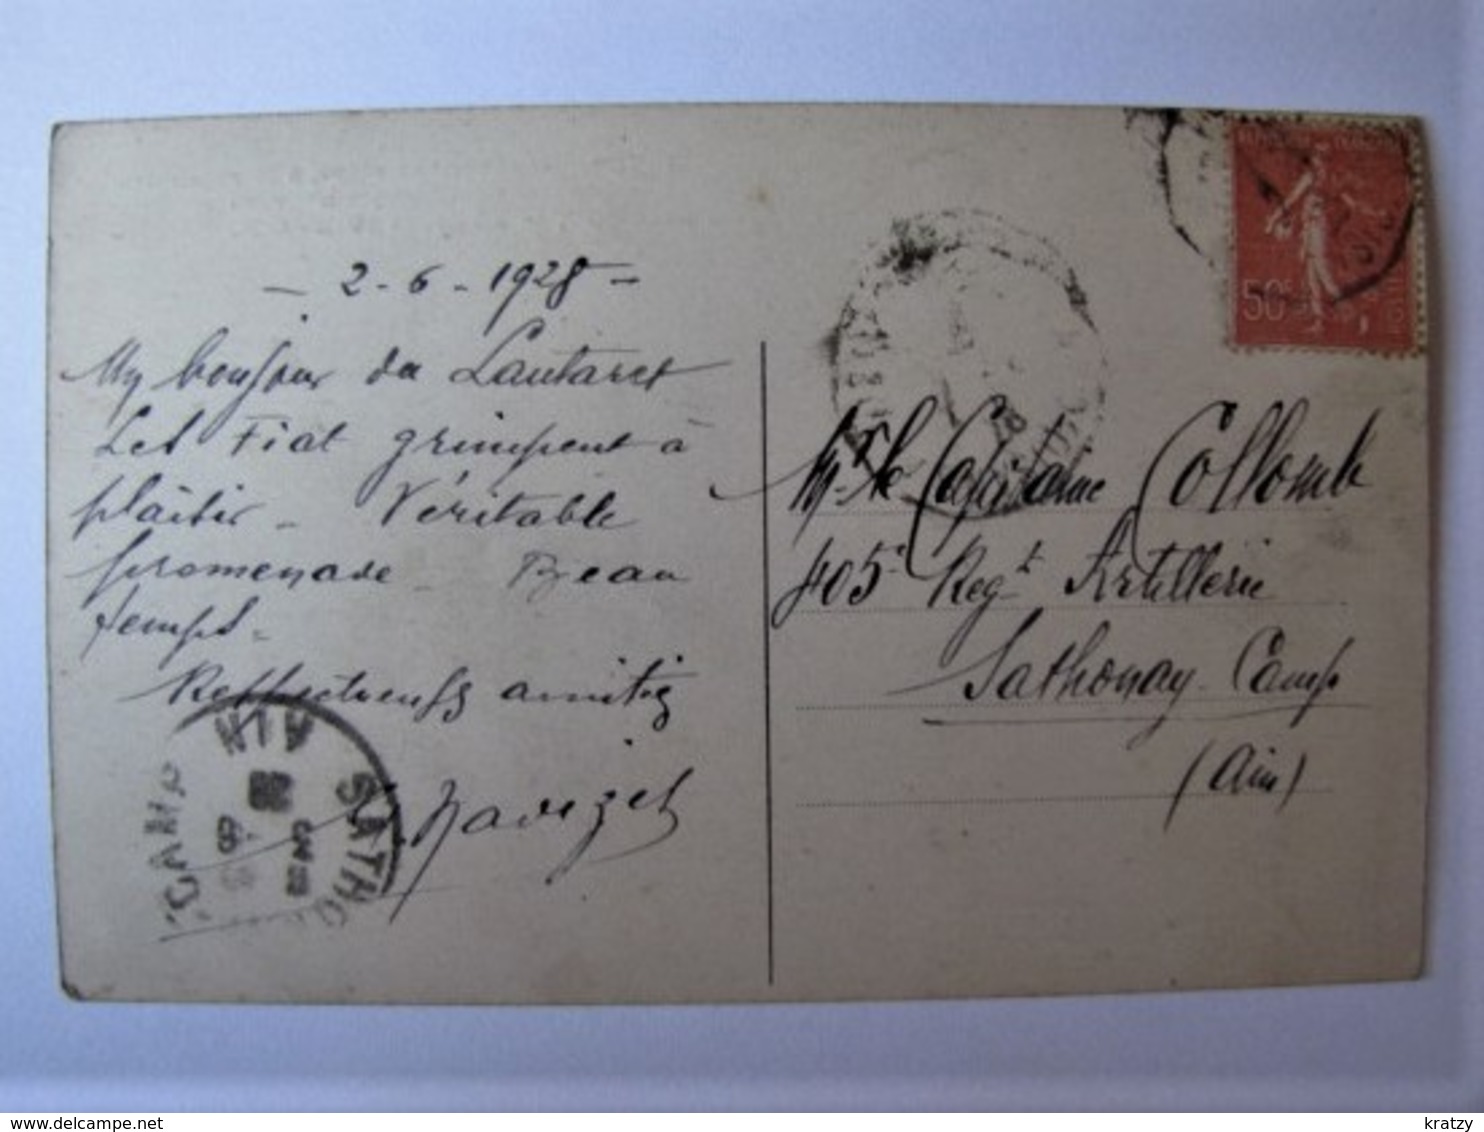 - 2 - 6 - 1928 -
Un bonjour du Lautaret
Les Fiat grimpent à
plaisir - Véritable
promenade - Beau
temps -
Respectueuses amitiés
Mr le Capitaine Collomb
405e Regt Artillerie
Sathonay - Camp
(Ain)
50c
SATHO CAMP AIN
www.delcampe.net
kratzy